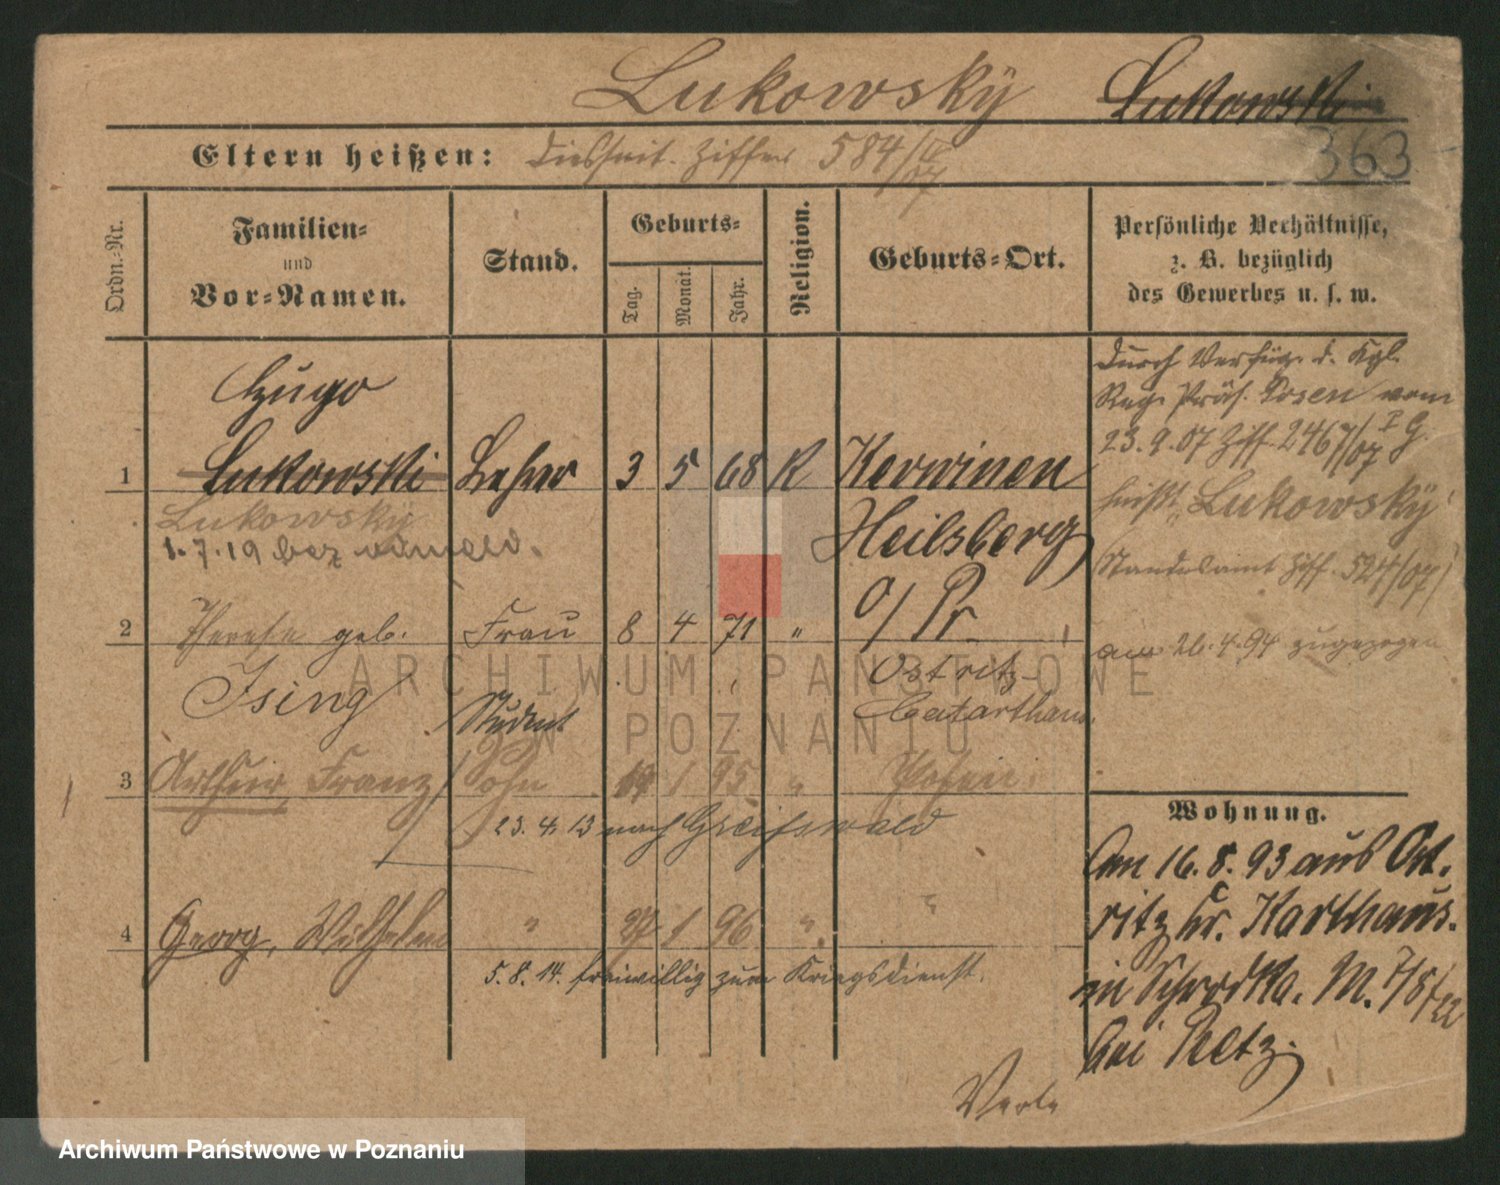 Lukowsky Lukowski
363
Eltern heißen: diesseit. Ziffer 584/
Ordn.-Nr.
Familien- und Vor-Namen.
Stand.
Geburts-
Tag. Monat. Jahr.
Religion.
Geburts-Ort.
Persönliche Verhältnisse,
z. B. bezüglich
des Gewerbes u. s. w.
Hugo
1 Lukowski Lehrer 3 5 68 K Kerwinen
Lukowsky
Heilsberg
1.7.19
O/Pr.
2 Therese geb. Frau 8 4 71 "
Ising
Ostritz-
Carthaus.
Student
3 Arthur Franz Sohn 1 95 " Posen
23.4.13 nach Greifswald
4 Georg, Wilhelm " 27 1 96 " "
5.8.14. freiwillig zum Kriegsdienst.
durch Verfüg. d. Kgl.
Reg. Präs. Posen vom
23.9.07 Ziff. 2467/07 I G.
heißt "Lukowsky"
Standesamt Ziff. 524/07
am 26.4.94 zugezogen
Wohnung.
Am 16.8.93 aus Ost-
ritz Kr. Karthaus.
in Schrodka. M. 7/8/22
bei Peltz.
ARCHIWUM PAŃSTWOWE
W POZNANIU
Archiwum Państwowe w Poznaniu